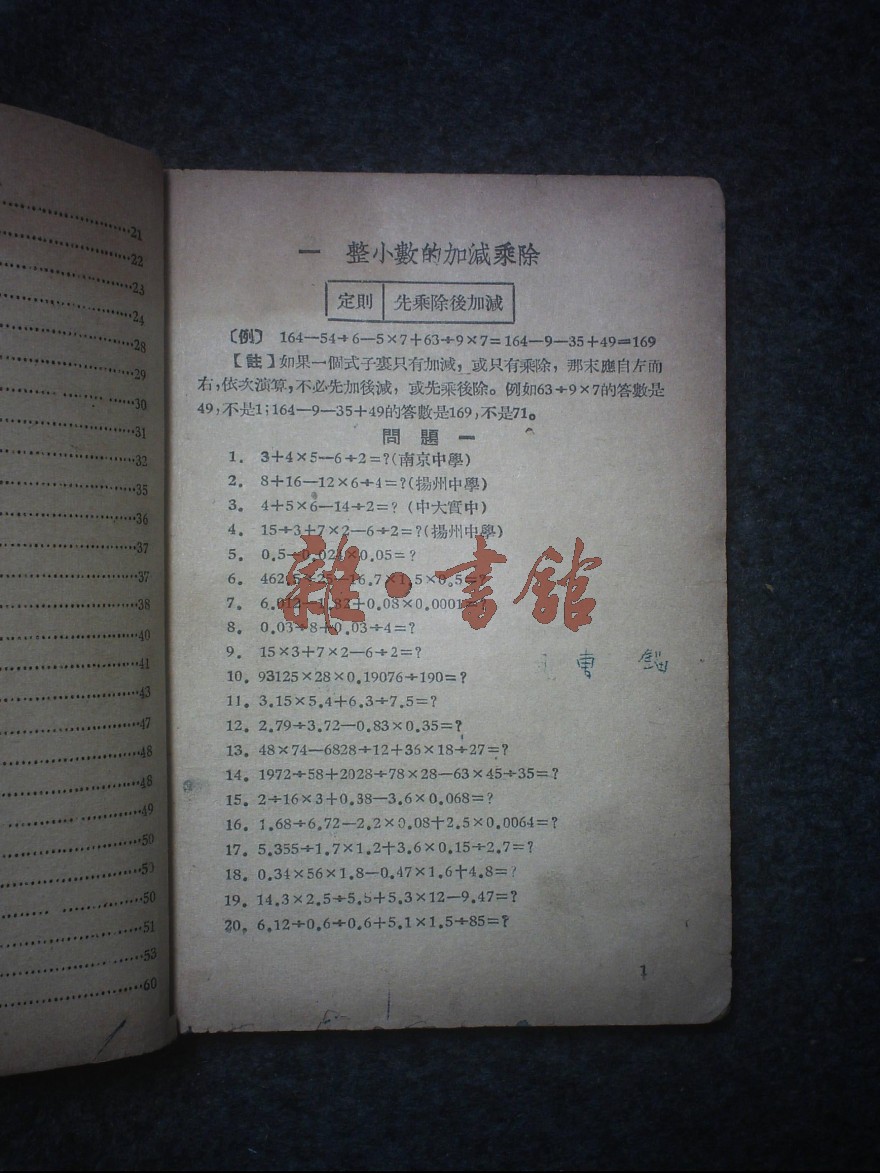 21
22
23
24
28
29
30
31
32
35
36
37
37
38
40
41
43
47
48
48
49
50
50
50
51
53
60
一 整小數的加減乘除
定則 先乘除後加減
〔例〕 164—54÷6—5×7+63÷9×7=164—9—35+49=169
【註】如果一個式子裏只有加減,或只有乘除,那末應自左而
右,依次演算,不必先加後減,或先乘後除。例如63÷9×7的答數是
49,不是1;164—9—35+49的答數是169,不是71。
問題一
1. 3+4×5—6÷2=?(南京中學)
2. 8+16—12×6÷4=?(揚州中學)
3. 4+5×6—14÷2=? (中大實中)
4. 15÷3+7×2—6÷2=?(揚州中學)
5. 0.5—0.024×0.05=?
6. 462.5×25—16.7×1.5×0.5=?
7. 6.012—1.82+0.08×0.0001=?
8. 0.03÷8+0.03÷4=?
9. 15×3+7×2—6÷2=?
10. 93125×28×0.19076÷190=?
11. 3.15×5.4+6.3÷7.5=?
12. 2.79÷3.72—0.83×0.35=?
13. 48×74—6828÷12+36×18÷27=?
14. 1972÷58+2028÷78×28—63×45÷35=?
15. 2÷16×3+0.38—3.6×0.068=?
16. 1.68÷6.72—2.2×0.08+2.5×0.0064=?
17. 5.355÷1.7×1.2+3.6×0.15÷2.7=?
18. 0.34×56×1.8—0.47×1.6+4.8=?
19. 14.3×2.5÷5.5+5.3×12—9.47=?
20. 6.12÷0.6÷0.6+5.1×1.5÷85=?
1
雜·書館